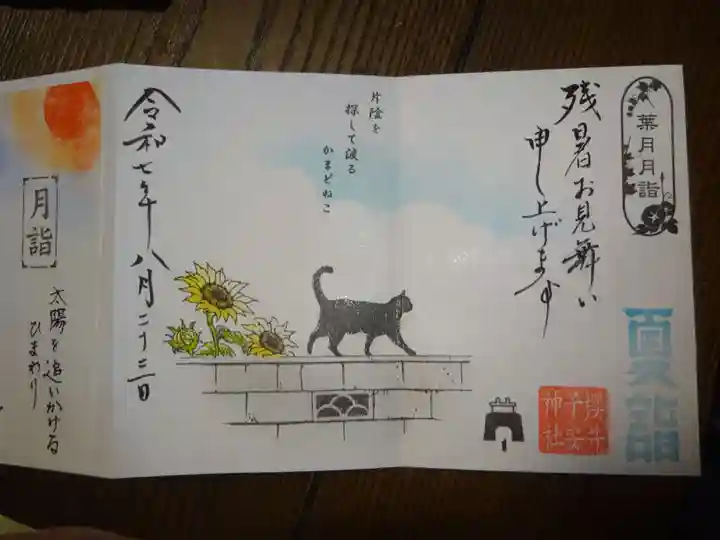 葉月月詣
夏詣
残暑お見舞い
申し上げます
櫻井
子安
神社
片陰を
探して渡る
かまどねこ
令和七年八月二十三日
月詣
太陽を追いかける
ひまわり